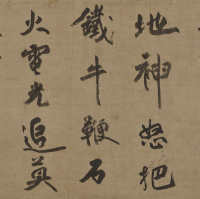 地神怒把
鐵牛鞭石
火電光追莫